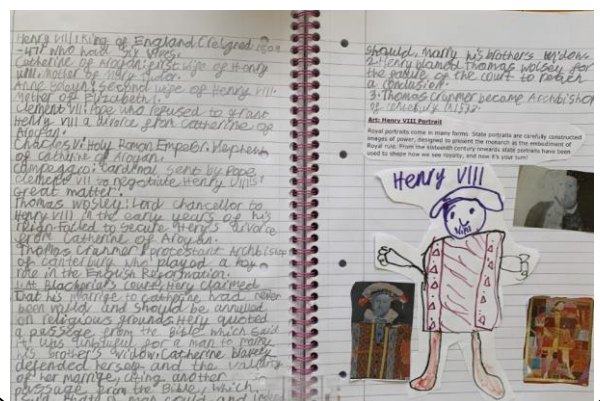 Henry VIII: King of England (reigned 1509
-47) who had six wives.
Catherine of Aragon: first wife of Henry
VIII. Mother of Mary Tudor.
Anne Boleyn: second wife of Henry VIII.
Mother of Elizabeth I.
Clement VII: Pope who refused to grant
Henry VIII a divorce from Catherine of
Aragon.
Charles V: Holy Roman Emperor. Nephew
of Catherine of Aragon.
Campeggio: Cardinal sent by Pope
Clement VII to negotiate Henry VIII's
'great matter'.
Thomas Wolsey: Lord chancellor to
Henry VIII in the early years of his
reign. Failed to secure Henry's divorce
from Catherine of Aragon.
Thomas Cranmer: protestant Archbishop
of Canterbury who played a key
role in the English Reformation.
1: At Blackfriars court, Henry claimed
that his marriage to Catherine had never
been valid and should be annulled
on religious grounds. Henry quoted
a passage from the Bible which said
it was unlawful for a man to marry
his brother's widow. Catherine bravely
defended herself and the validity
of her marriage, citing another
passage from the Bible, which
said that a man could and indeed
should, marry his brother's widow.
2: Henry blamed Thomas Wolsey for
the failure of the court to reach
a conclusion.
3: Thomas Cranmer became Archbishop
of Canterbury
Art: Henry VIII Portrait
Royal portraits come in many forms. State portraits are carefully constructed
images of power, designed to present the monarch as the embodiment of
Royal rule. From the sixteenth century onwards state portraits have been
used to shape how we see royalty, and now it's your turn!
Henry VIII